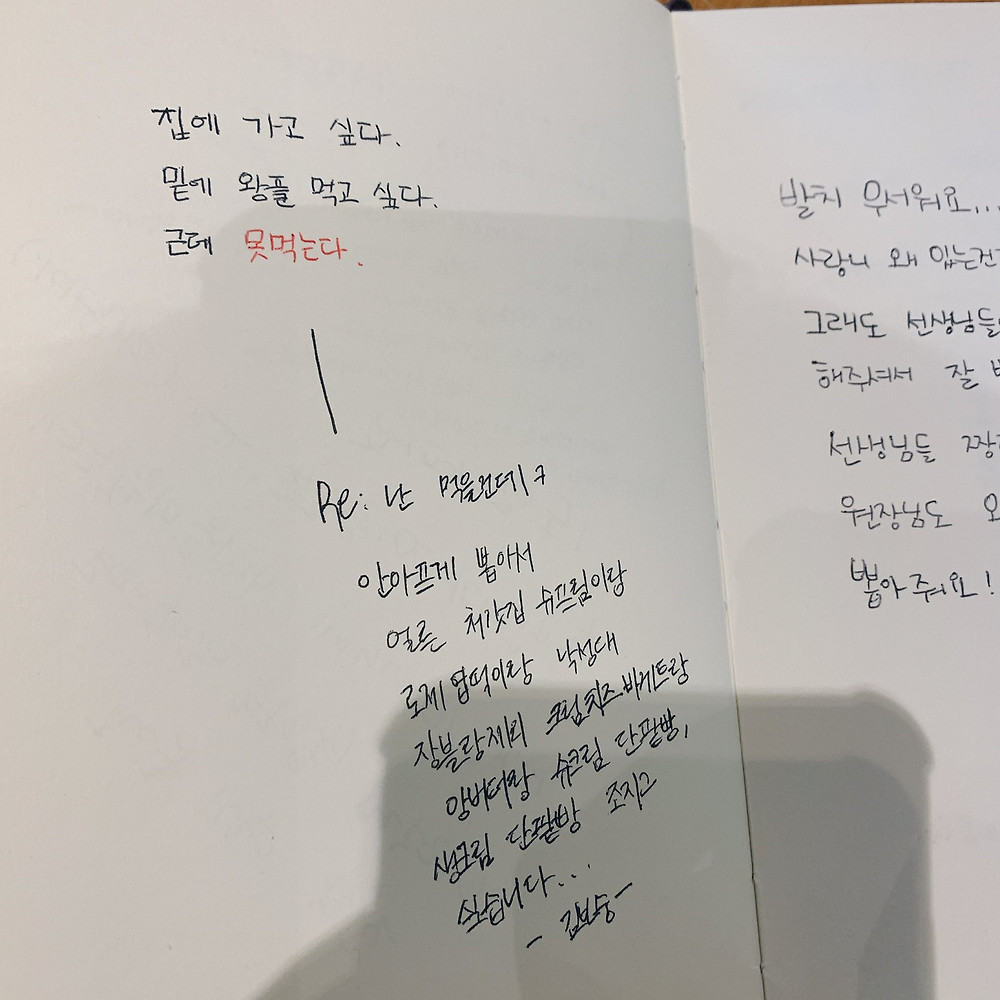 집에 가고 싶다.
밑에 왕플 먹고 싶다.
근데 못먹는다.
Re: 난 먹을건데ㅋ
안아프게 뽑아서
얼른 처갓집 슈프림이랑
로제엽떡이랑 낙성대
장블랑제리 크림치즈바게트랑
앙버터랑 슈크림 단팥빵,
생크림 단팥빵 조지고
싶습니다...
발치 무서워요...
사랑니 왜 있는건
그래도 선생님들
해주셔서 잘
선생님들 짱
원장님도
뽑아줘요!